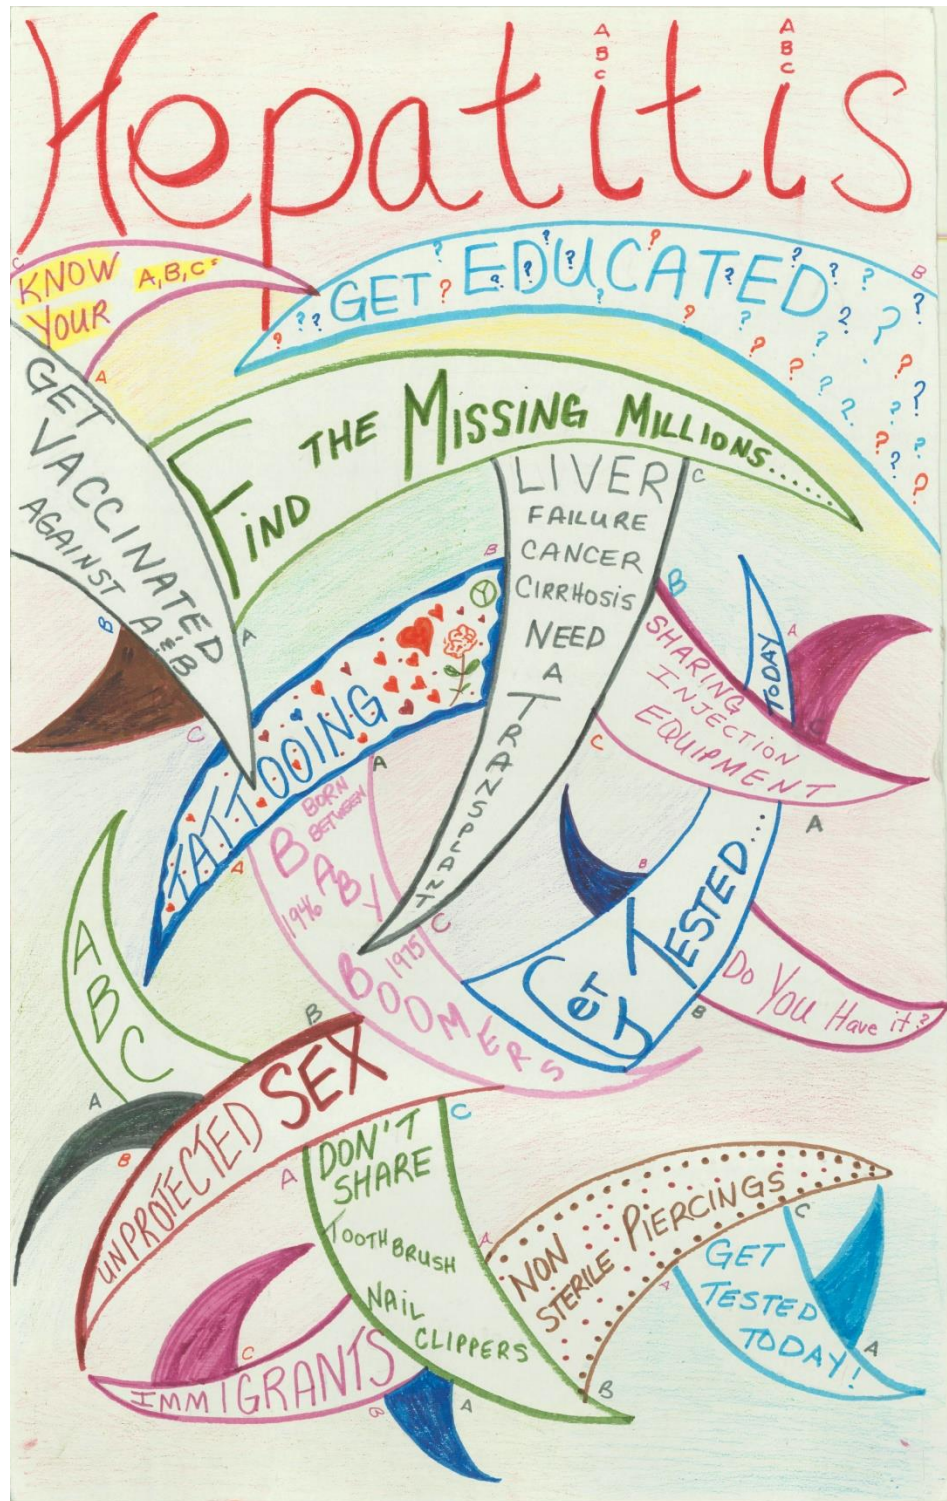 Hepatitis
A
B
C
A
B
C
KNOW
YOUR
A,B,C's
C
A
GET EDUCATED
B
GET
VACCINATED
AGAINST
A & B
FIND THE MISSING MILLIONS....
A
B
C
LIVER
FAILURE
CANCER
CIRRHOSIS
NEED
A
TRANSPLANT
C
B
TATTOOING
A
A
SHARING
INJECTION
EQUIPMENT
B
C
A
TODAY
A
C
BORN
BETWEEN
BABY
1946
1975
BOOMERS
C
B
GET TESTED....
B
Do You Have it?
B
ABC
A
UNPROTECTED SEX
B
A
DON'T
SHARE
TOOTHBRUSH
NAIL
CLIPPERS
C
A
NON
STERILE PIERCINGS
A
B
C
GET
TESTED
TODAY!
A
A
IMMIGRANTS
C
B